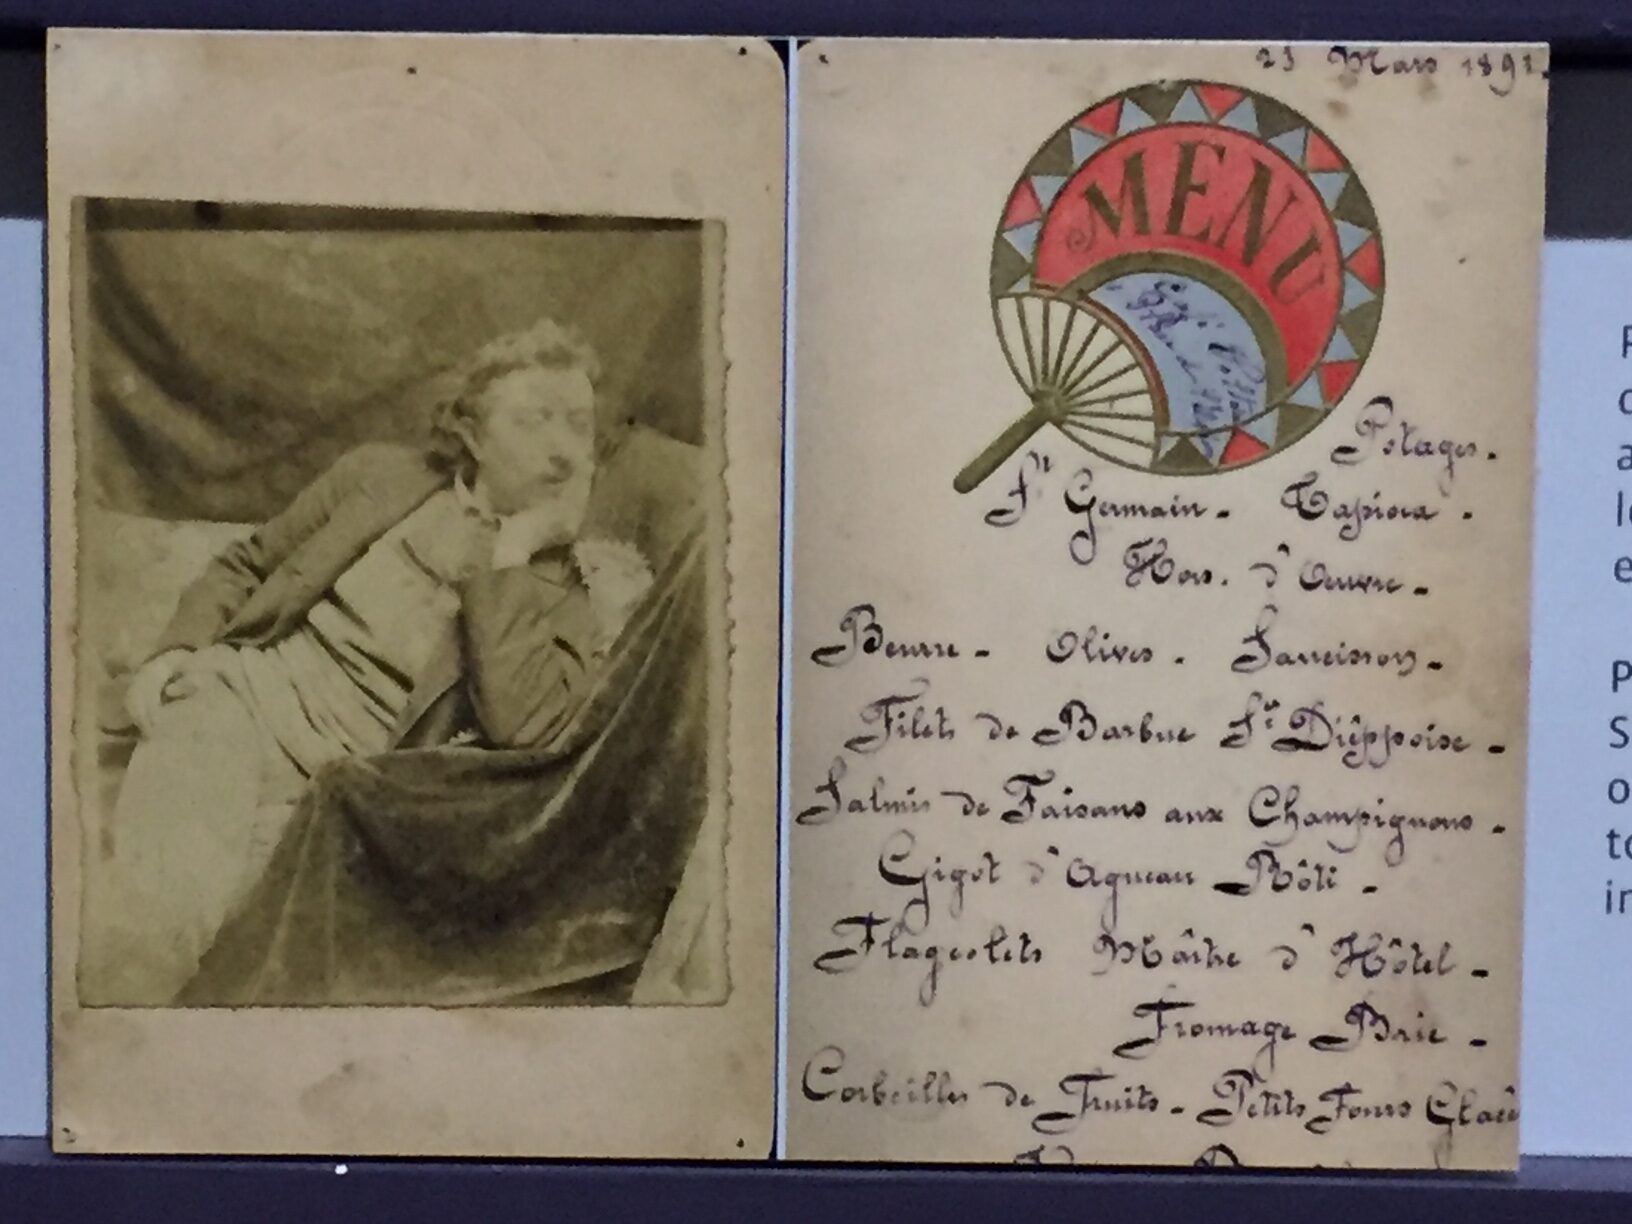 23 Mars 1892.
MENU
Potages.
St Germain - Tapioca.
Hors. d'Oeuvre -
Beurre - Olives. Saucisson -
Filets de Barbue Sce Dièppoise -
Salmis de Faisans aux Champignons -
Gigot d'Agneau Rôti -
Flageolets Maître d'Hôtel -
Fromage Brie -
Corbeilles de Fruits - Petits Fours Glacé